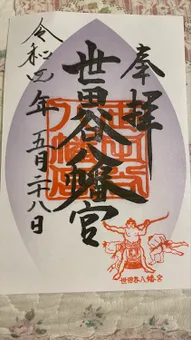 奉拝
世田谷八幡宮
令和四年 五月二十八日
世田谷八幡宮